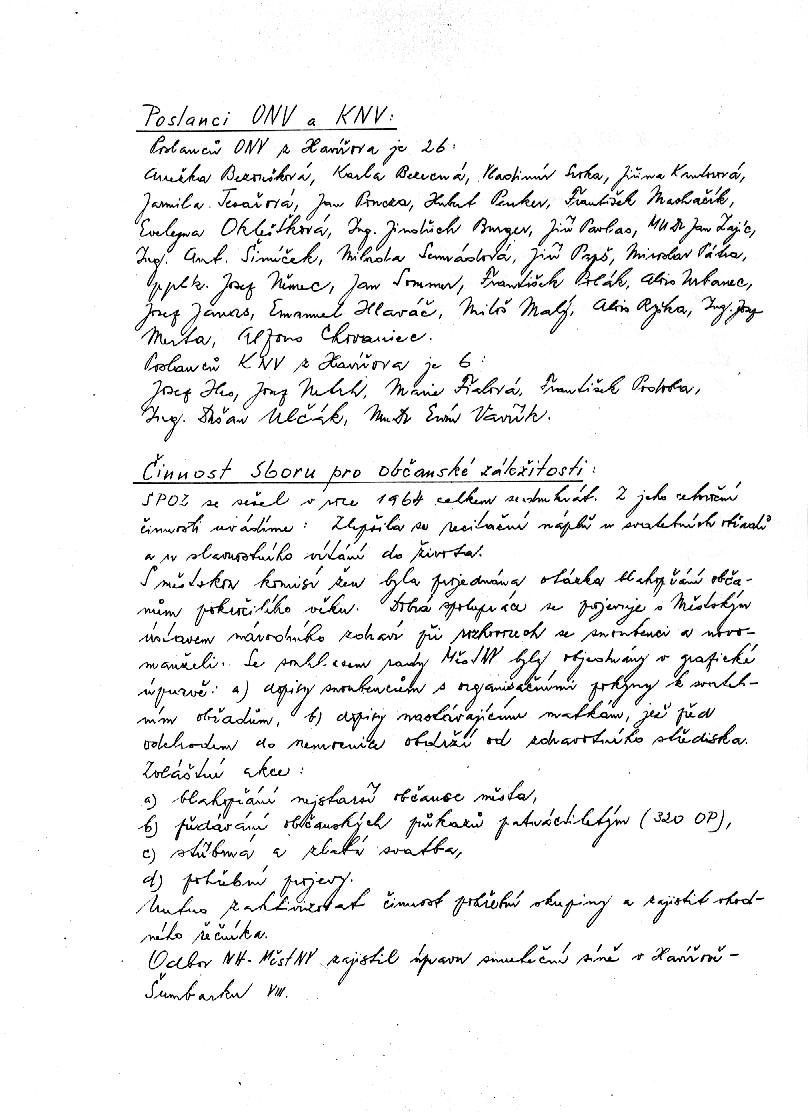 Poslanci ONV a KNV:
Poslanců ONV z Havířova je 26:
Anežka Bezroušková, Karla Bezecná, Vladimír Svrha, Jiřina Kundrová,
Jarmila Tesařová, Jan Poncza, Hubert Penker, František Machačík,
Evelyna Okleštková, Ing. Jindřich Burger, Jiří Pavlas, MUDr Jan Zajíc,
Ing. Ant. Šimíček, Miluška Semrádová, Jiří Pypš, Miroslav Pátra,
pplk. Josef Němec, Jan Sommer, František Polák, Alois Urbanec,
Josef Janas, Emanuel Hlaváč, Miloš Malý, Alois Ryška, Ing. Josef
Merta, Alfons Chovaniec.
Poslanců KNV z Havířova je 6:
Josef Hes, Josef Netch, Marie Fialová, František Probola,
Ing. Dušan Ulčák, MuDr Ervín Vavřík.
Činnost Sboru pro občanské záležitosti:
SPOZ se sešel v roce 1964 celkem sedmkrát. Z jeho celoroční
činnosti uvádíme: Zlepšila se recitační náplň u svatebních obřadů
a u slavnostního vítání do života.
S městskou komisí žen byla projednána otázka blahopřání obča-
nům pokročilého věku. Dobrá spolupráce se projevuje s Městským
ústavem národního zdraví při rozhovorech se snoubenci a novo-
manželi. Se souhlasem rady MěstNV byly objednány v grafické
úpravě: a) dopisy snoubencům s organisačními pokyny k svateb-
ním obřadům, b) dopisy nastávajícím matkám, jež před
odchodem do nemocnice obdrží od zdravotního střediska.
Zvláštní akce:
a) blahopřání nejstarší občance města,
b) předávání občanských průkazů patnáctiletým (320 OP),
c) stříbrná a zlatá svatba,
d) pohřební projevy.
Nutno zaktivizovat činnost pohřební skupiny a zajistit vhod-
ného řečníka.
Odbor NH-MěstNV zajistil úpravu smuteční síně v Havířově-
Šumbarku VIII.